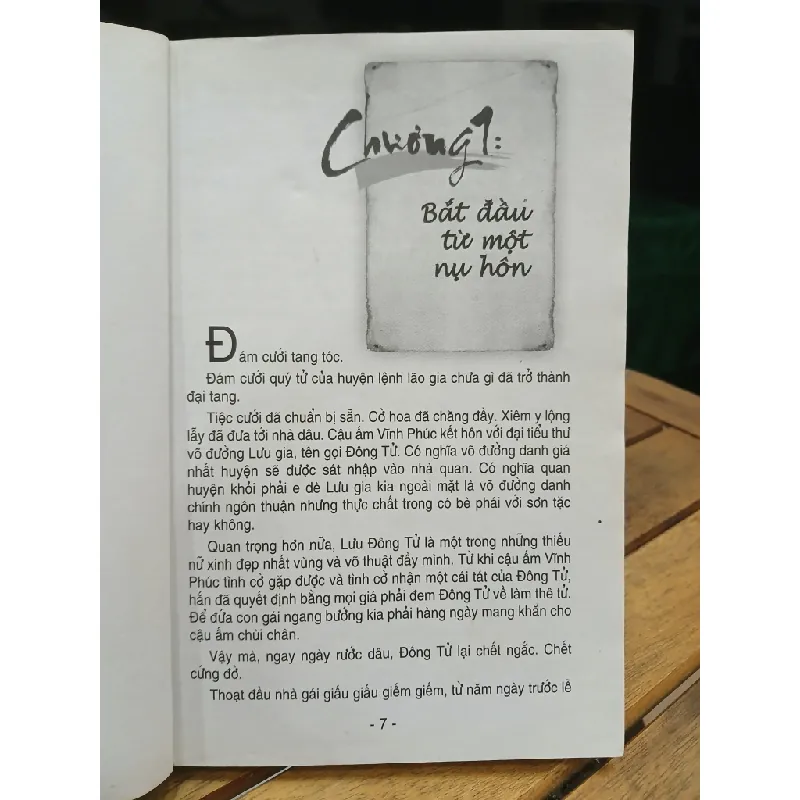 Chương 1:
Bắt đầu
từ một
nụ hôn
Đám cưới tang tóc.
Đám cưới quý tử của huyện lệnh lão gia chưa gì đã trở thành
đại tang.
Tiệc cưới đã chuẩn bị sẵn. Cờ hoa đã chăng đầy. Xiêm y lộng
lẫy đã đưa tới nhà dâu. Cậu ấm Vĩnh Phúc kết hôn với đại tiểu thư
võ đường Lưu gia, tên gọi Đông Tử. Có nghĩa võ đường danh giá
nhất huyện sẽ được sát nhập vào nhà quan. Có nghĩa quan
huyện khỏi phải e dè Lưu gia kia ngoài mặt là võ đường danh
chính ngôn thuận nhưng thực chất trong có bè phái với sơn tặc
hay không.
Quan trọng hơn nữa, Lưu Đông Tử là một trong những thiếu
nữ xinh đẹp nhất vùng và võ thuật đầy mình. Từ khi cậu ấm Vĩnh
Phúc tình cờ gặp được và tình cờ nhận một cái tát của Đông Tử,
hắn đã quyết định bằng mọi giá phải đem Đông Tử về làm thê tử.
Để đứa con gái ngang bướng kia phải hàng ngày mang khăn cho
cậu ấm chùi chân.
Vậy mà, ngay ngày rước dâu, Đông Tử lại chết ngắc. Chết
cứng đờ.
Thoạt đầu nhà gái giấu giấu giếm giếm, từ năm ngày trước lễ
- 7 -